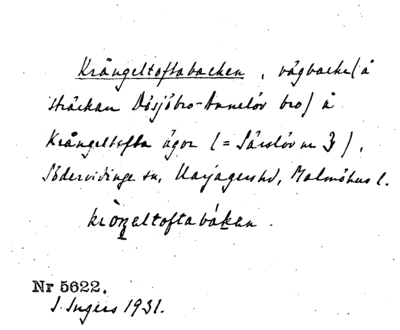 Krångeltoftabacken, vägbacke (å
sträckan Dösjöbro-Annelöv bro) å
Krångeltofta ägor (= Särslöv nr 3),
Södervidinge sn, Harjagers hd, Malmöhus l.
kròŋeltoftabákan.
Nr 5622.
I. Ingers 1931.